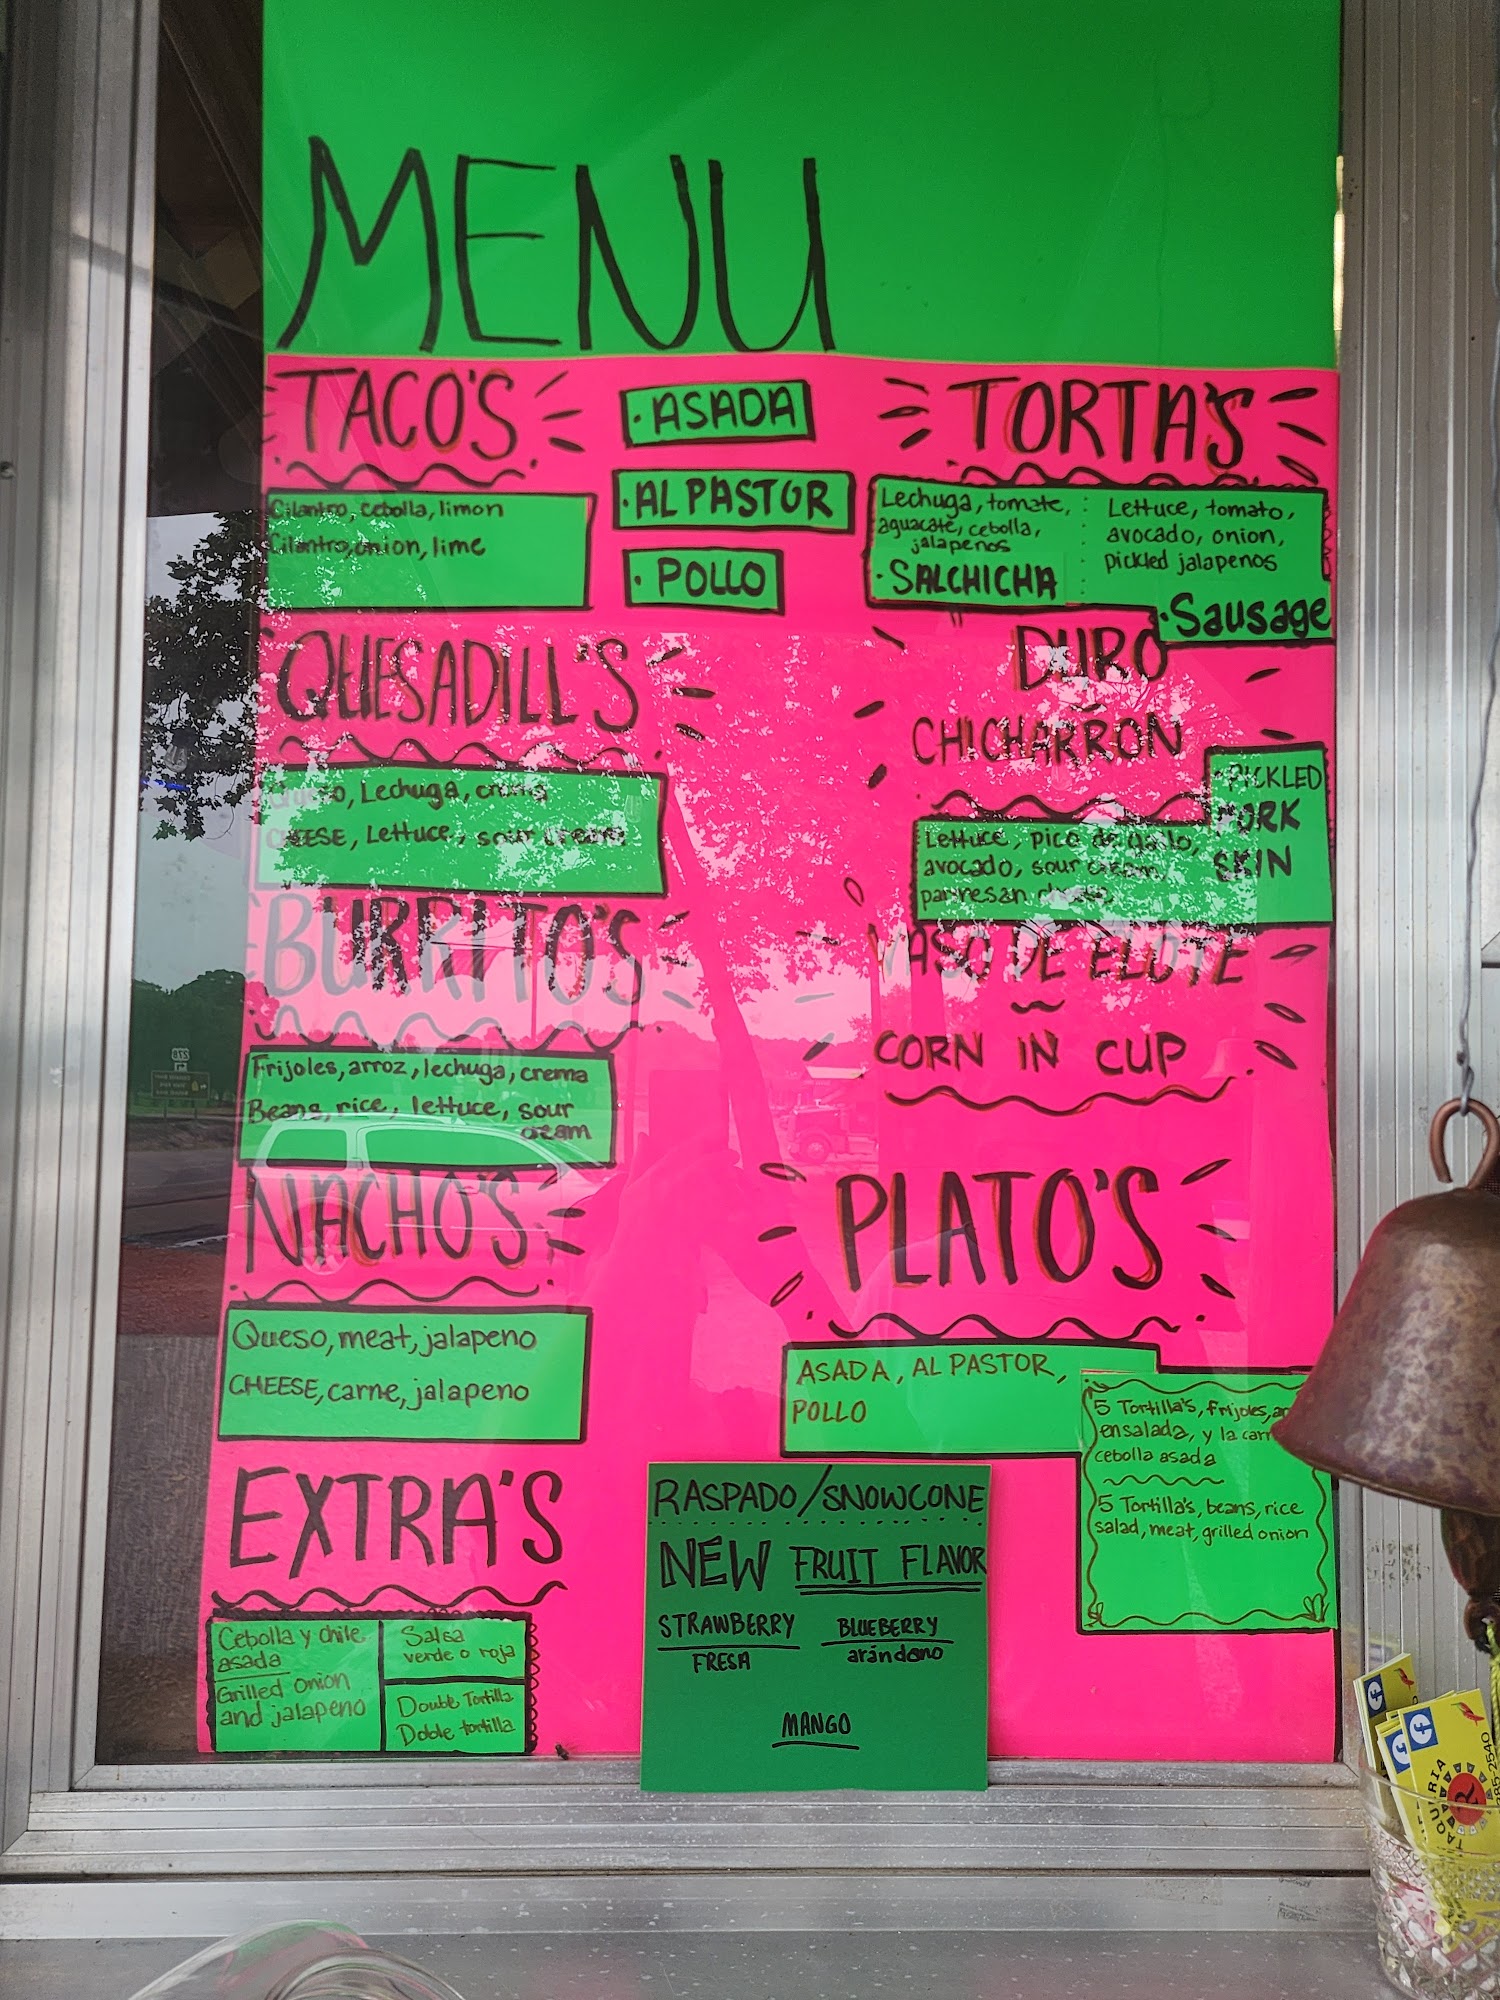 MENU
TACO'S
Cilantro, cebolla, limon
Cilantro, onion, lime
· ASADA
· AL PASTOR
· POLLO
TORTA'S
Lechuga, tomate,
aguacate, cebolla,
jalapenos
· SALCHICHA
Lettuce, tomato,
avocado, onion,
pickled jalapenos
· Sausage
QUESADILL'S
Queso, Lechuga, crema
CHEESE, Lettuce, sour cream
DURO
CHICHARRON
· PICKLED
PORK
SKIN
Lettuce, pico de gallo,
avocado, sour cream,
parmesan cheese
BURRITO'S
Frijoles, arroz, lechuga, crema
Beans, rice, lettuce, sour
cream
VASO DE ELOTE
~
CORN IN CUP
NACHO'S
Queso, meat, jalapeno
CHEESE, carne, jalapeno
PLATO'S
ASADA, AL PASTOR,
POLLO
5 Tortilla's, frijoles,
ensalada, y la
cebolla asada
5 Tortilla's, beans, rice
salad, meat, grilled onion
EXTRA'S
Cebolla y chile
asada
Grilled onion
and jalapeno
Salsa
verde o roja
Double Tortilla
Doble tortilla
RASPADO/SNOWCONE
NEW FRUIT FLAVOR
STRAWBERRY
FRESA
BLUEBERRY
arándano
MANGO
TAQUERIA
R
285-2540
f
f
f